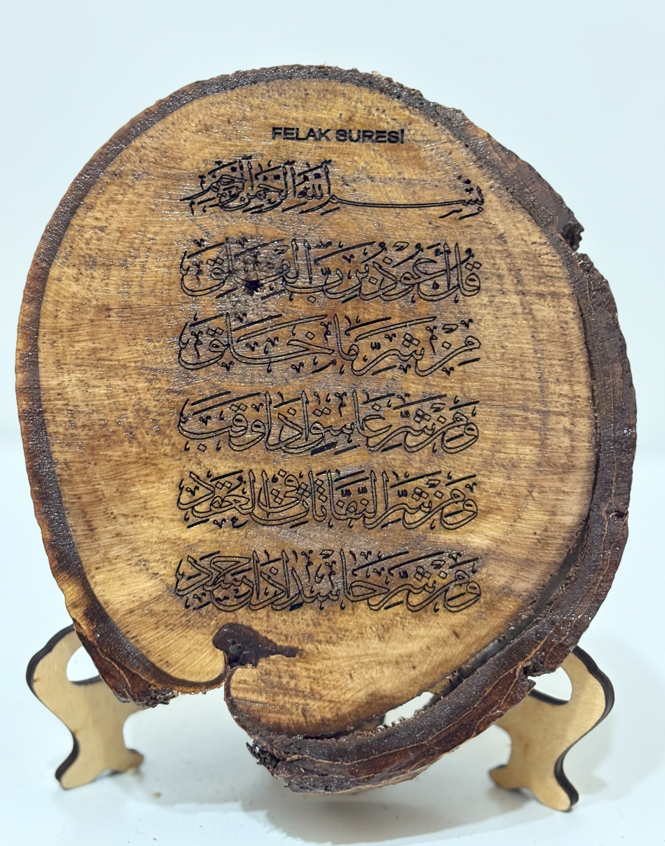 FELAK SURESİ
بِسْمِ اللّٰهِ الرَّحْمٰنِ الرَّحِيمِ
قُلْ أَعُوذُ بِرَبِّ الْفَلَقِ
مِنْ شَرِّ مَا خَلَقَ
وَمِنْ شَرِّ غَاسِقٍ إِذَا وَقَبَ
وَمِنْ شَرِّ النَّفَّاثَاتِ فِي الْعُقَدِ
وَمِنْ شَرِّ حَاسِدٍ إِذَا حَسَدَ